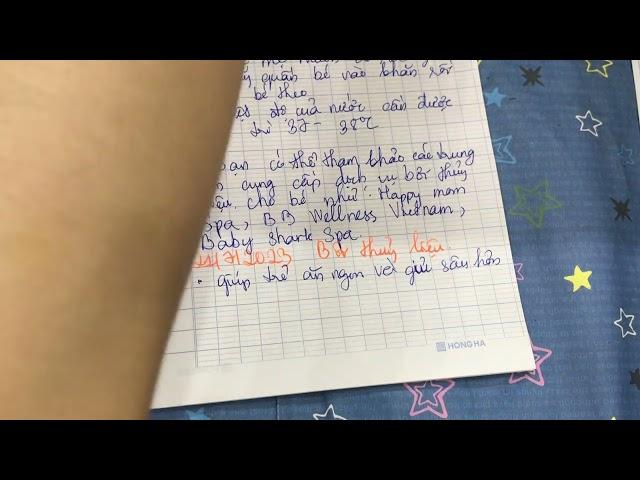 quấn bé vào khăn rồi
bé theo
độ của nước cần được
trì 37 - 38°C
bạn có thể tham khảo các trung
cung cấp dịch vụ bơi thủy
liệu cho bé như: Happy mom
Spa, BB Wellness Vietnam,
Baby Shark Spa
24/7/2023 Bơi thủy liệu.
• giúp trẻ ăn ngon và giữ sâu hơn
HONG HA